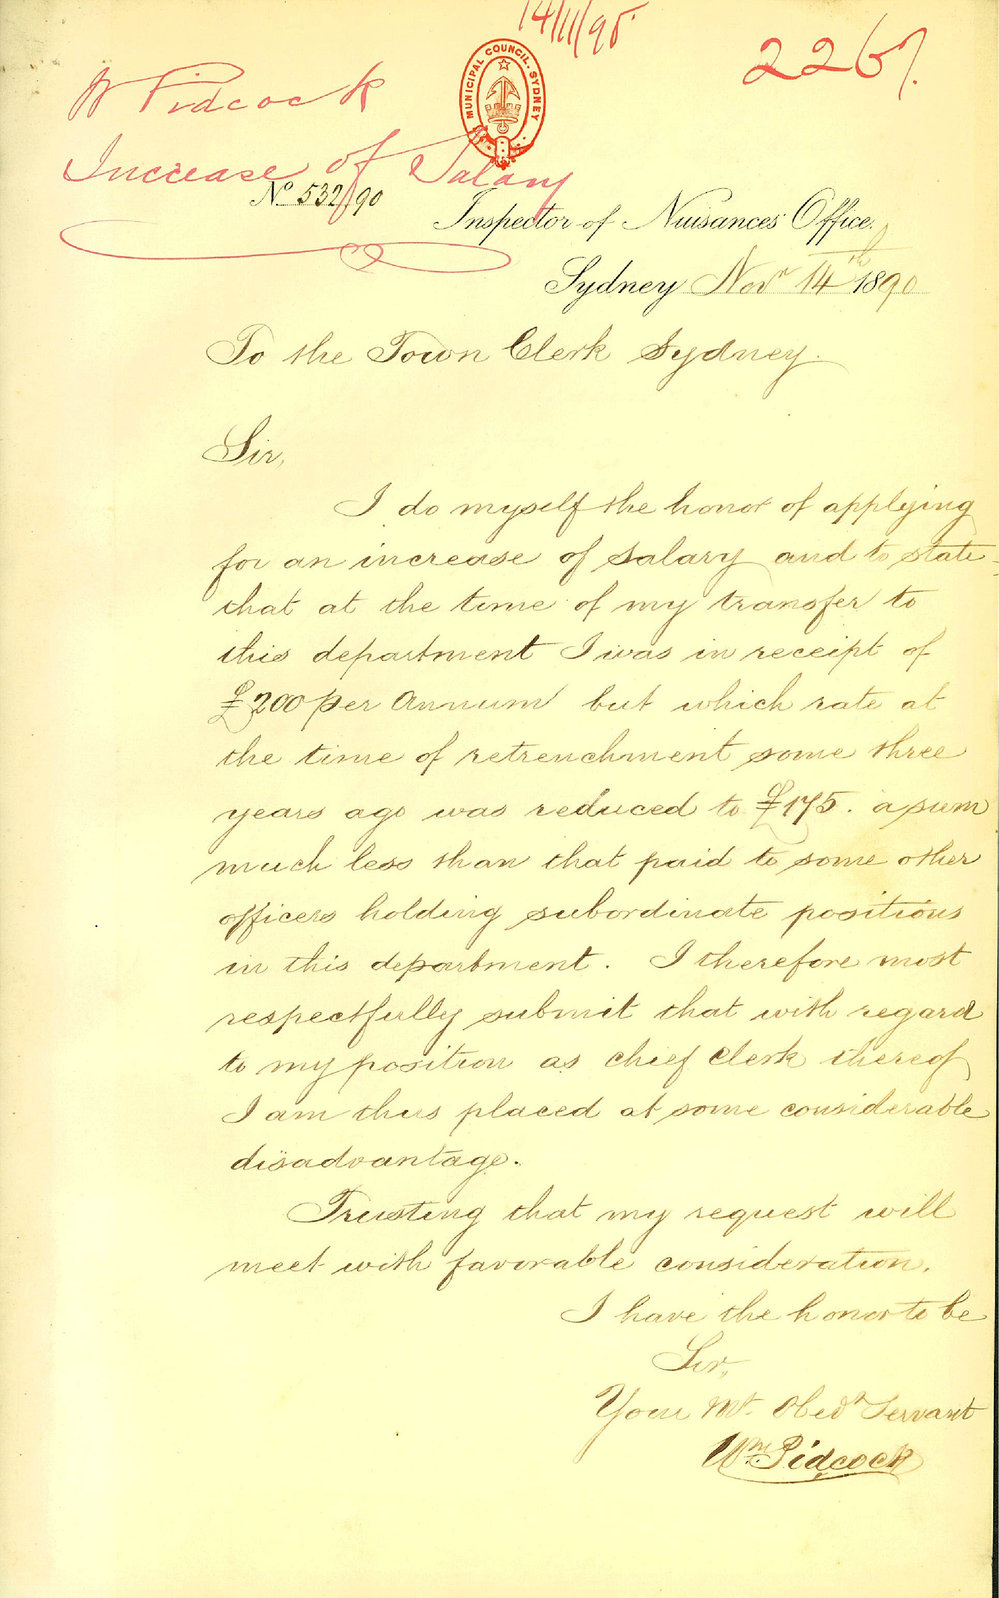 14/11/90
2267
W Pidcock
MUNICIPAL COUNCIL. SYDNEY
Increase of Salary
No. 532/90
Inspector of Nuisances' Office.
Sydney Novr 14th 1890
To the Town Clerk Sydney.
Sir,
I do myself the honor of applying
for an increase of salary and to state
that at the time of my transfer to
this department I was in receipt of
£200 per Annum but which rate at
the time of retrenchment some three
years ago was reduced to £175. a sum
much less than that paid to some other
officers holding subordinate positions
in this department. I therefore most
respectfully submit that with regard
to my position as chief Clerk thereof
I am thus placed at some considerable
disadvantage.
Trusting that my request will
meet with favorable consideration.
I have the honor to be
Sir,
Your Mt. Obedt Servant
Wm. Pidcock